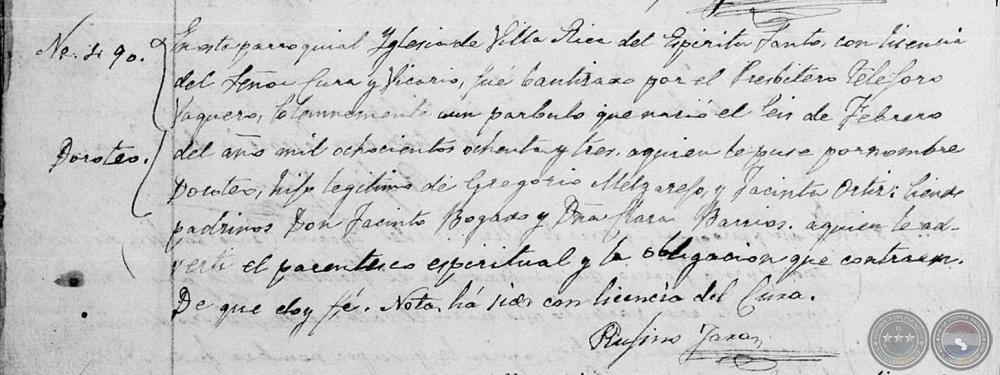 No. 490. En esta parroquial Yglesia de Villa Rica del Espiritu Santo, con lisencia
del Señor Cura y Vicario, fué bautizado por el Presbitero Teleforo
Vaquero, Solennemente un parbulo que nació el Seis de Febrero
Doroteo. del año mil ochocientos ochenta y tres. aquien le puse por nombre
Doroteo, hijo legitimo de Gregorio Melgarejo, y Jacinta Ortiz: Siendo
padrinos Don Jacinto Bogado y Dña Clara Barrios. aquien le ad-
verti el parentesco espiritual y la obligacion que contraen.
De que doy fé. Nota, há sido con licencia del Cura.
Rufino Jara